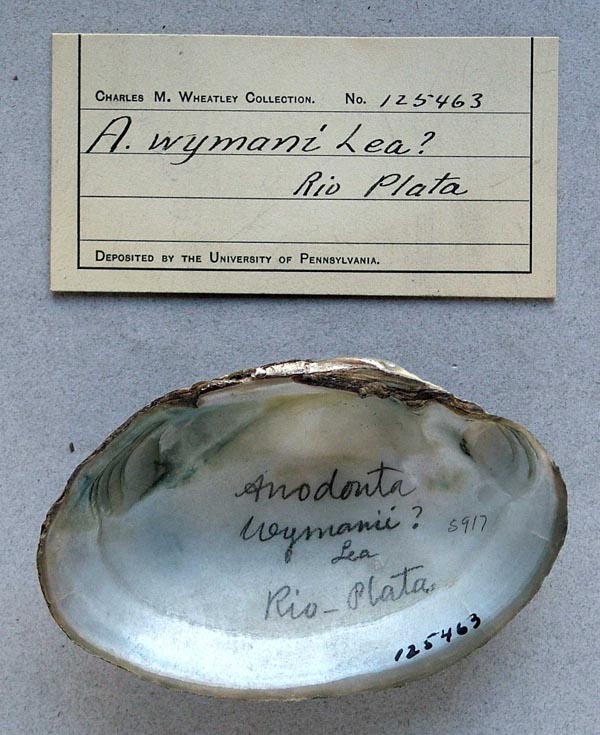 Charles M. Wheatley Collection. No. 125463
A. wymani Lea?
Rio Plata
Deposited by the University of Pennsylvania.
Anodonta
Wymanii? 5917
Lea
Rio-Plata
125463